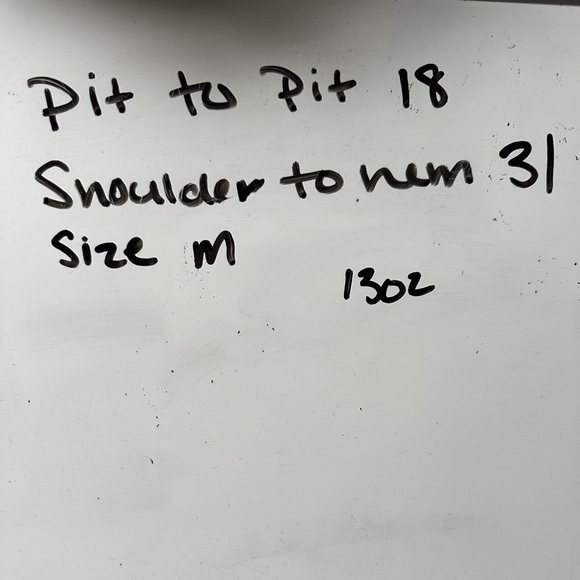 Pit to Pit 18
Shoulder to hem 31
Size M
13oz